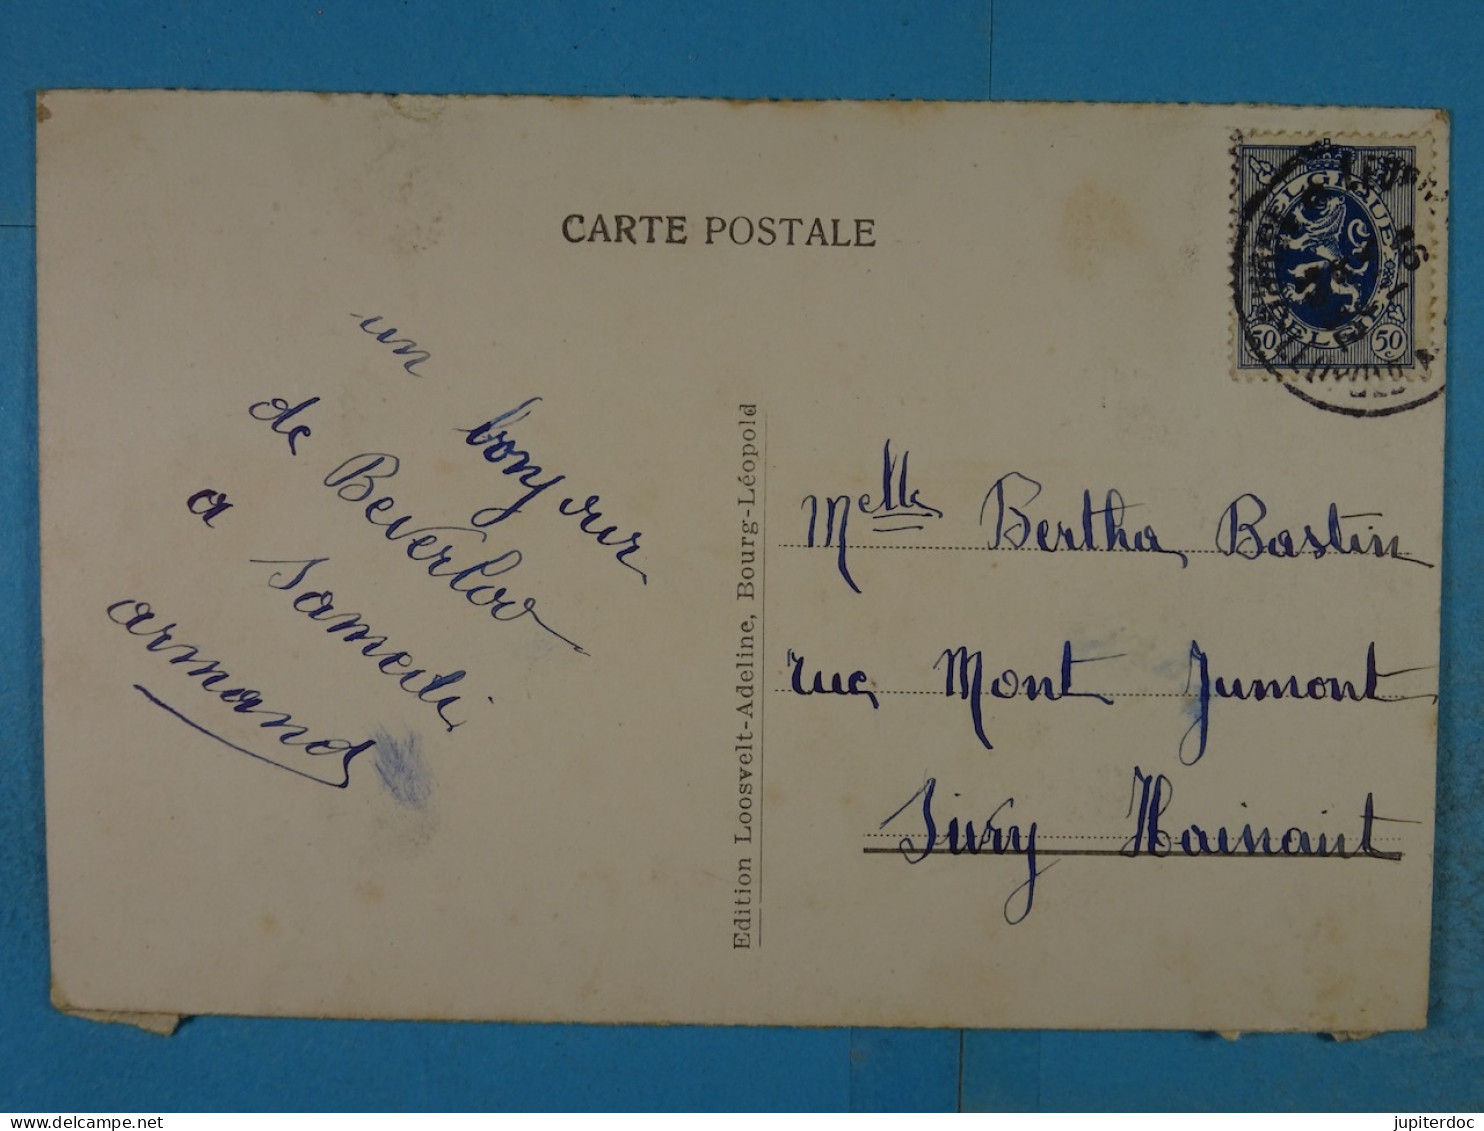 CARTE POSTALE
BELGIQUE
BELGIË
50 50
un
bonjour
de Beverloo
a Samedi
armand
Edition Loosvelt-Adeline, Bourg-Léopold
Melle Bertha Bastin
rue Mont Jumont
Sivry Hainaut
jupiterdoc